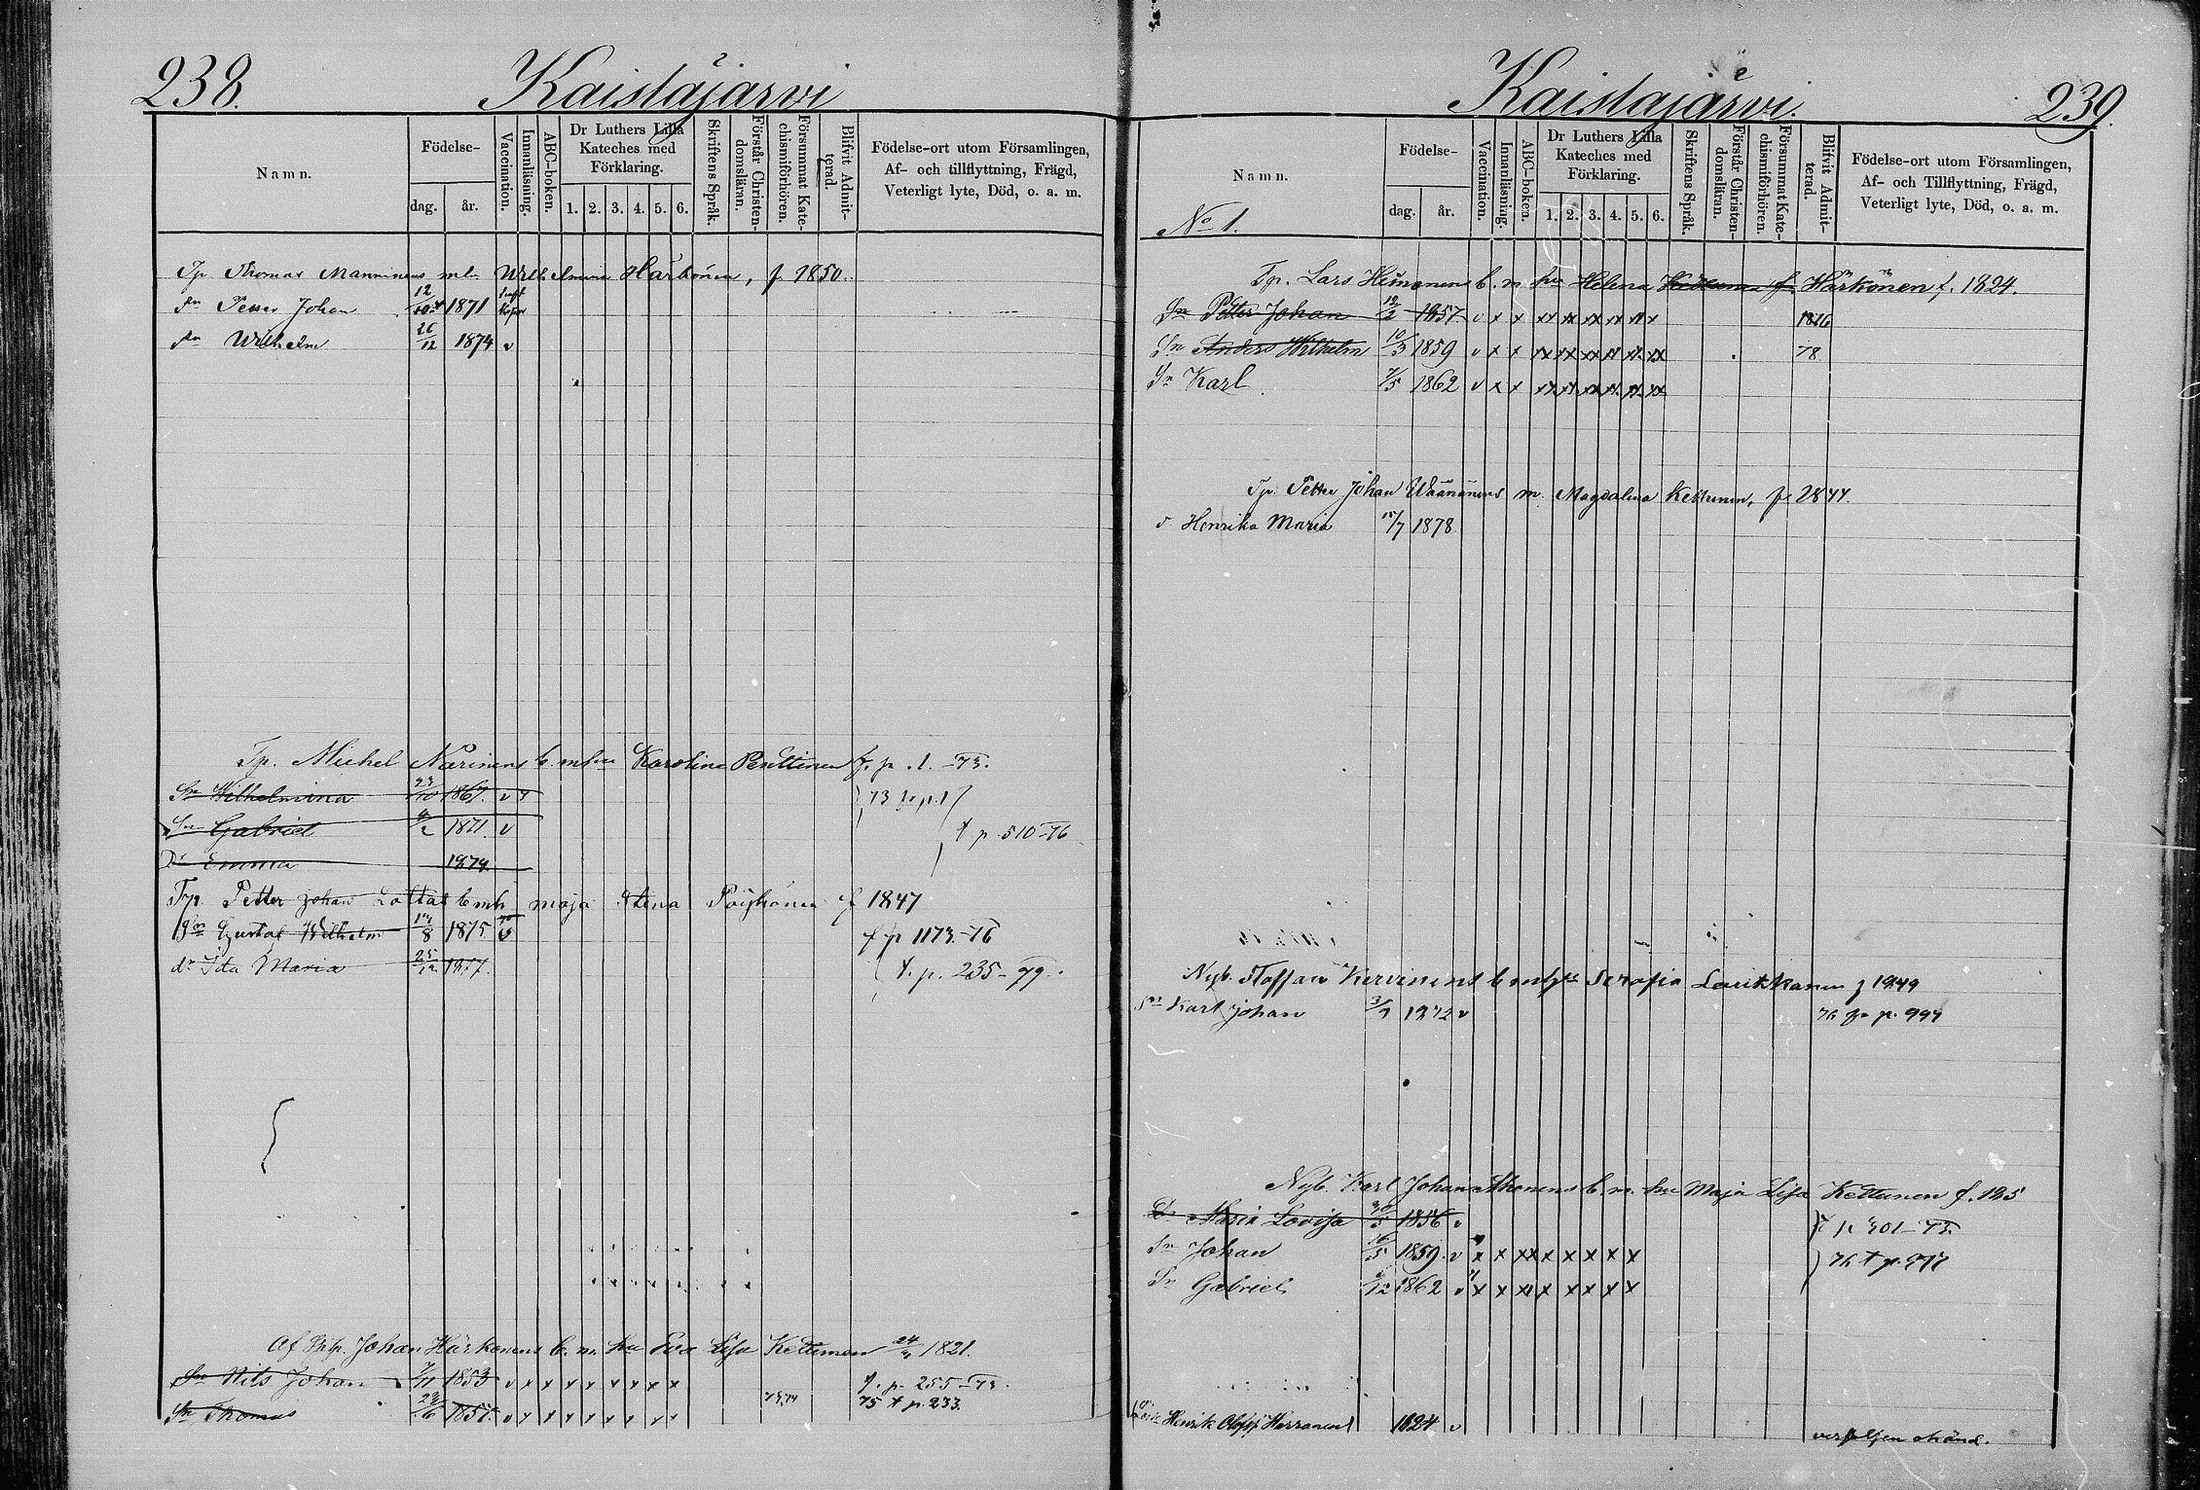 238.
Kaislajärvi
Namn.
Födelse-
dag.
år.
Vaccination.
Innanläsning.
ABC-boken.
Dr Luthers Lilla Kateches med Förklaring.
1. 2. 3. 4. 5. 6.
Skriftens Språk.
Förstår Christendomsläran.
Försummat Katechismiförhören.
Blifvit Admitterad.
Födelse-ort utom Församlingen, Af- och tillflyttning, Frägd, Veterligt lyte, Död, o. a. m.
Tp Thomas Manninens Wilhelmina Härkönen, f 1850.
Sn Petter Johan 1871
Sn Wilhelm 26/12 1874 v
Tp. Michel Närinens b. m hu Karolina Penttinen f. p. 1. -73.
Wilhelmina 23/10 1867. v 73 fr p. 1
Sn Gabriel 1871 v t p. 510-76
Dr Emma 1874
Tp. Petter Johan Lottas b mh Maja Stena Pöyhönen f 1847
Sn Gustaf Wilhelm 14/8 1875 v f p 1173-76
dr Ida Maria 1877. t. p. 235-79.
Af Johan Härkönens b. m. hu Eva Lisa Kettunen 1821.
Sn Nils Johan 7/11 1853 v x x x x x x x x f. p. 255-73.
Sn Thomas 23/6 1857. v x x x x x x x x 75 t p. 233.
Kaislajärvi.
239.
Namn.
No 1.
Födelse-
dag.
år.
Vaccination.
Innanläsning.
ABC-boken.
Dr Luthers Lilla Kateches med Förklaring.
1. 2. 3. 4. 5. 6.
Skriftens Språk.
Förstår Christendomsläran.
Försummat Katechismiförhören.
Blifvit Admitterad.
Födelse-ort utom Församlingen, Af- och Tillflyttning, Frägd, Veterligt lyte, Död, o. a. m.
Tp. Lars Heimonens b. m. hu Helena Härkönen f. 1824.
Sn Petter Johan 12/2 1857 v x x xx xx xx xx xx x
Sn Anders Wilhelm 10/3 1859 v x x xx xx xx xx xx xx 78
Sn Karl 7/5 1862 v x x xx xx xx xx xx xx
Tp. Petter Johan Väänänens m. Magdalena Kettunen, f 1844.
d. Henrika Maria 15/7 1878.
Nyb. Staffan Kervinens b m h Serafia Laukkanen f 1849
Sn Karl Johan 1872 v 76 fr p. 994
Nyb. Karl Johan Ahonens b. m. hu Maja Lisa Kettunen f. 185
Dr Maria Lovisa 30/5 1856 v f p 301-73.
Sn Johan 16/5 1859. v x x xx x x x x x 76 t p.
Sn Gabriel 1862 v x x x x x x x x
Henrik Olof Herranen 1824 v